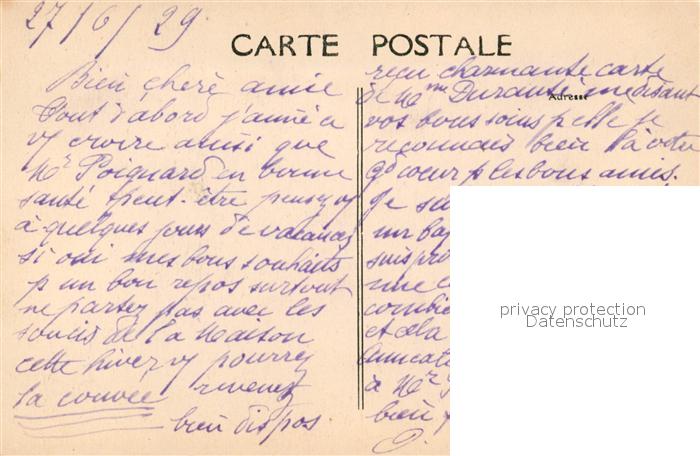 27/6/29
CARTE POSTALE
Bien chère amie
Tout d'abord j'aime à
vs croire ainsi que
Mr Poignard en bonne
santé peut-être pensez vs
à quelques jours de vacances
si oui mes bons souhaits
p un bon repos surtout
ne partez pas avec les
soucis de la Maison
cette hiver vs pourrez
la couvée revenez
bien dispos
reçu charmante carte
de Mme Durante me disant
Adresse
vos bons soins p elle je
reconnais bien là votre
gd coeur p les bons amis.
Je
un
suis
une
combie
et
Amicale
à Mr
bien
privacy protection
Datenschutz